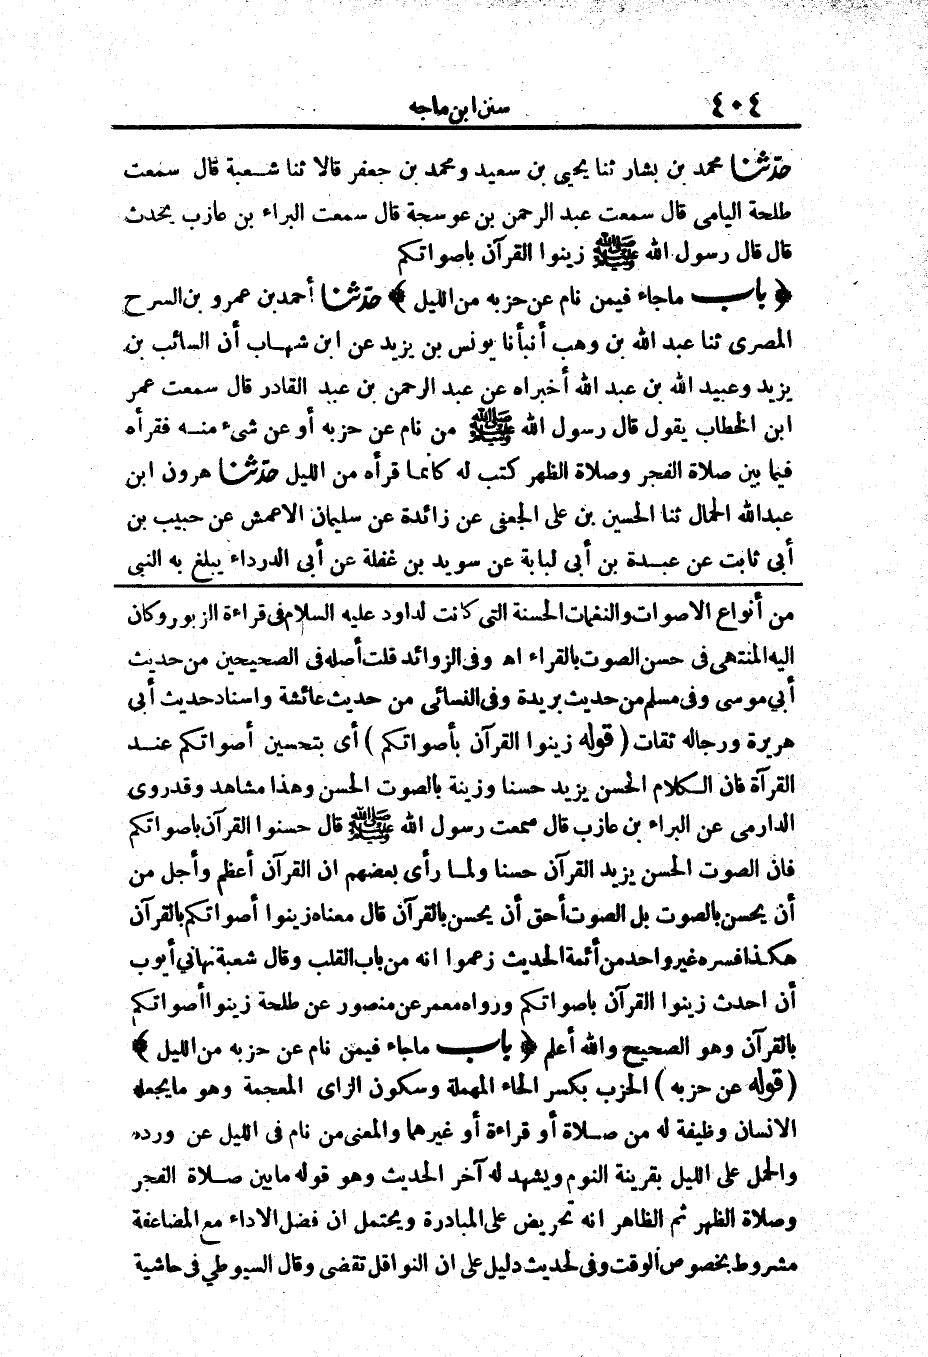 ٤٠٤
سنن ابن ماجه
حدّثنا محمد بن بشار ثنا يحيى بن سعيد ومحمد بن جعفر قالا ثنا شعبة قال سمعت
طلحة اليامى قال سمعت عبد الرحمن بن عوسجة قال سمعت البراء بن عازب يحدث
قال قال رسول الله ﷺ زينوا القرآن باصواتكم
﴿ باب ماجاء فيمن نام عن حزبه من الليل ﴾ حدّثنا أحمد بن عمرو بن السرح
المصرى ثنا عبد الله بن وهب أنبأنا يونس بن يزيد عن ابن شهاب أن السائب بن
يزيد وعبيد الله بن عبد الله أخبراه عن عبد الرحمن بن عبد القادر قال سمعت عمر
ابن الخطاب يقول قال رسول الله ﷺ من نام عن حزبه أو عن شىء منه فقرأه
فيما بين صلاة الفجر وصلاة الظهر كتب له كانما قرأه من الليل حدّثنا هرون ابن
عبدالله الحمال ثنا الحسين بن على الجعفى عن زائدة عن سليمان الاعمش عن حبيب بن
أبى ثابت عن عبدة بن أبى لبابة عن سويد بن غفلة عن أبى الدرداء يبلغ به النبى
من أنواع الاصوات والنغمات الحسنة التى كانت لداود عليه السلام فى قراءة الزبور وكان
اليه المنتهى فى حسن الصوت بالقراء اه وفى الزوائد قلت أصله فى الصحيحين من حديث
أبى موسى وفى مسلم من حديث بريدة وفى النسائى من حديث عائشة واسناد حديث أبى
هريرة ورجاله ثقات ( قوله زينوا القرآن بأصواتكم ) أى بتحسين أصواتكم عند
القرآة فان الكلام الحسن يزيد حسنا وزينة بالصوت الحسن وهذا مشاهد وقد روى
الدارمى عن البراء بن عازب قال سمعت رسول الله ﷺ قال حسنوا القرآن باصواتكم
فان الصوت الحسن يزيد القرآن حسنا ولما رأى بعضهم ان القرآن أعظم وأجل من
أن يحسن بالصوت بل الصوت أحق أن يحسن بالقرآن قال معناه زينوا أصواتكم بالقرآن
هكذا فسره غير واحد من أئمة الحديث زعموا انه من باب القلب وقال شعبة نهانى أيوب
أن احدث زينوا القرآن باصواتكم ورواه معمر عن منصور عن طلحة زينوا أصواتكم
بالقرآن وهو الصحيح والله أعلم ﴿ باب ماجاء فيمن نام عن حزبه من الليل ﴾
( قوله عن حزبه ) الحزب بكسر الحاء المهملة وسكون الزاى المعجمة وهو مايجعله
الانسان وظيفة له من صلاة أو قراءة أو غيرهما والمعنى من نام فى الليل عن ورده
والحمل على الليل بقرينة النوم ويشهد له آخر الحديث وهو قوله مابين صلاة الفجر
وصلاة الظهر ثم الظاهر انه تحريض على المبادرة ويحتمل ان فضل الاداء مع المضاعفة
مشروط بخصوص الوقت وفى لحديث دليل على ان النوافل تقضى وقال السيوطى فى حاشية